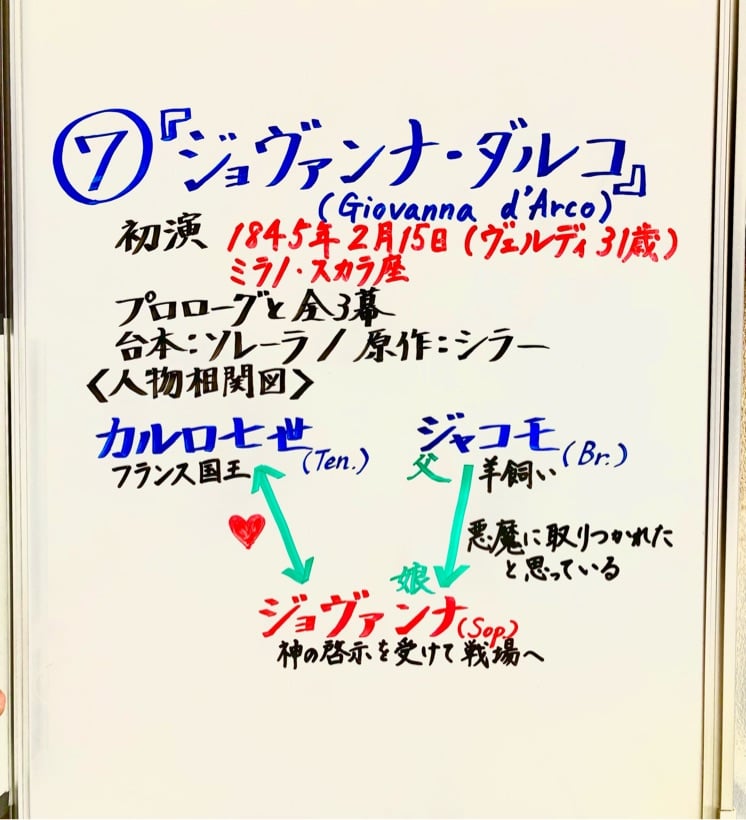 ⑦『ジョヴァンナ・ダルコ』
(Giovanna d'Arco)
初演 1845年2月15日(ヴェルディ31歳)
ミラノ・スカラ座
プロローグと全3幕
台本:ソレーラ/原作:シラー
〈人物相関図〉
カルロ七世(Ten.)
フランス国王
ジャコモ(Br.)
父 羊飼い
悪魔に取りつかれた
と思っている
娘
ジョヴァンナ(Sop.)
神の啓示を受けて戦場へ